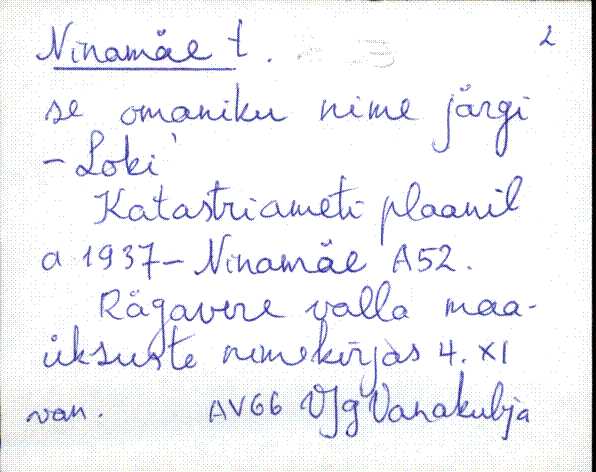 Ninamäe t. 2
se omaniku nime järgi
- Loki'
Katastriameti plaanil
a 1937 - Ninamäe A52.
Rägavere valla maa-
üksuste nimekirjas 4. XI
van. AV66 VJg Vanakubja